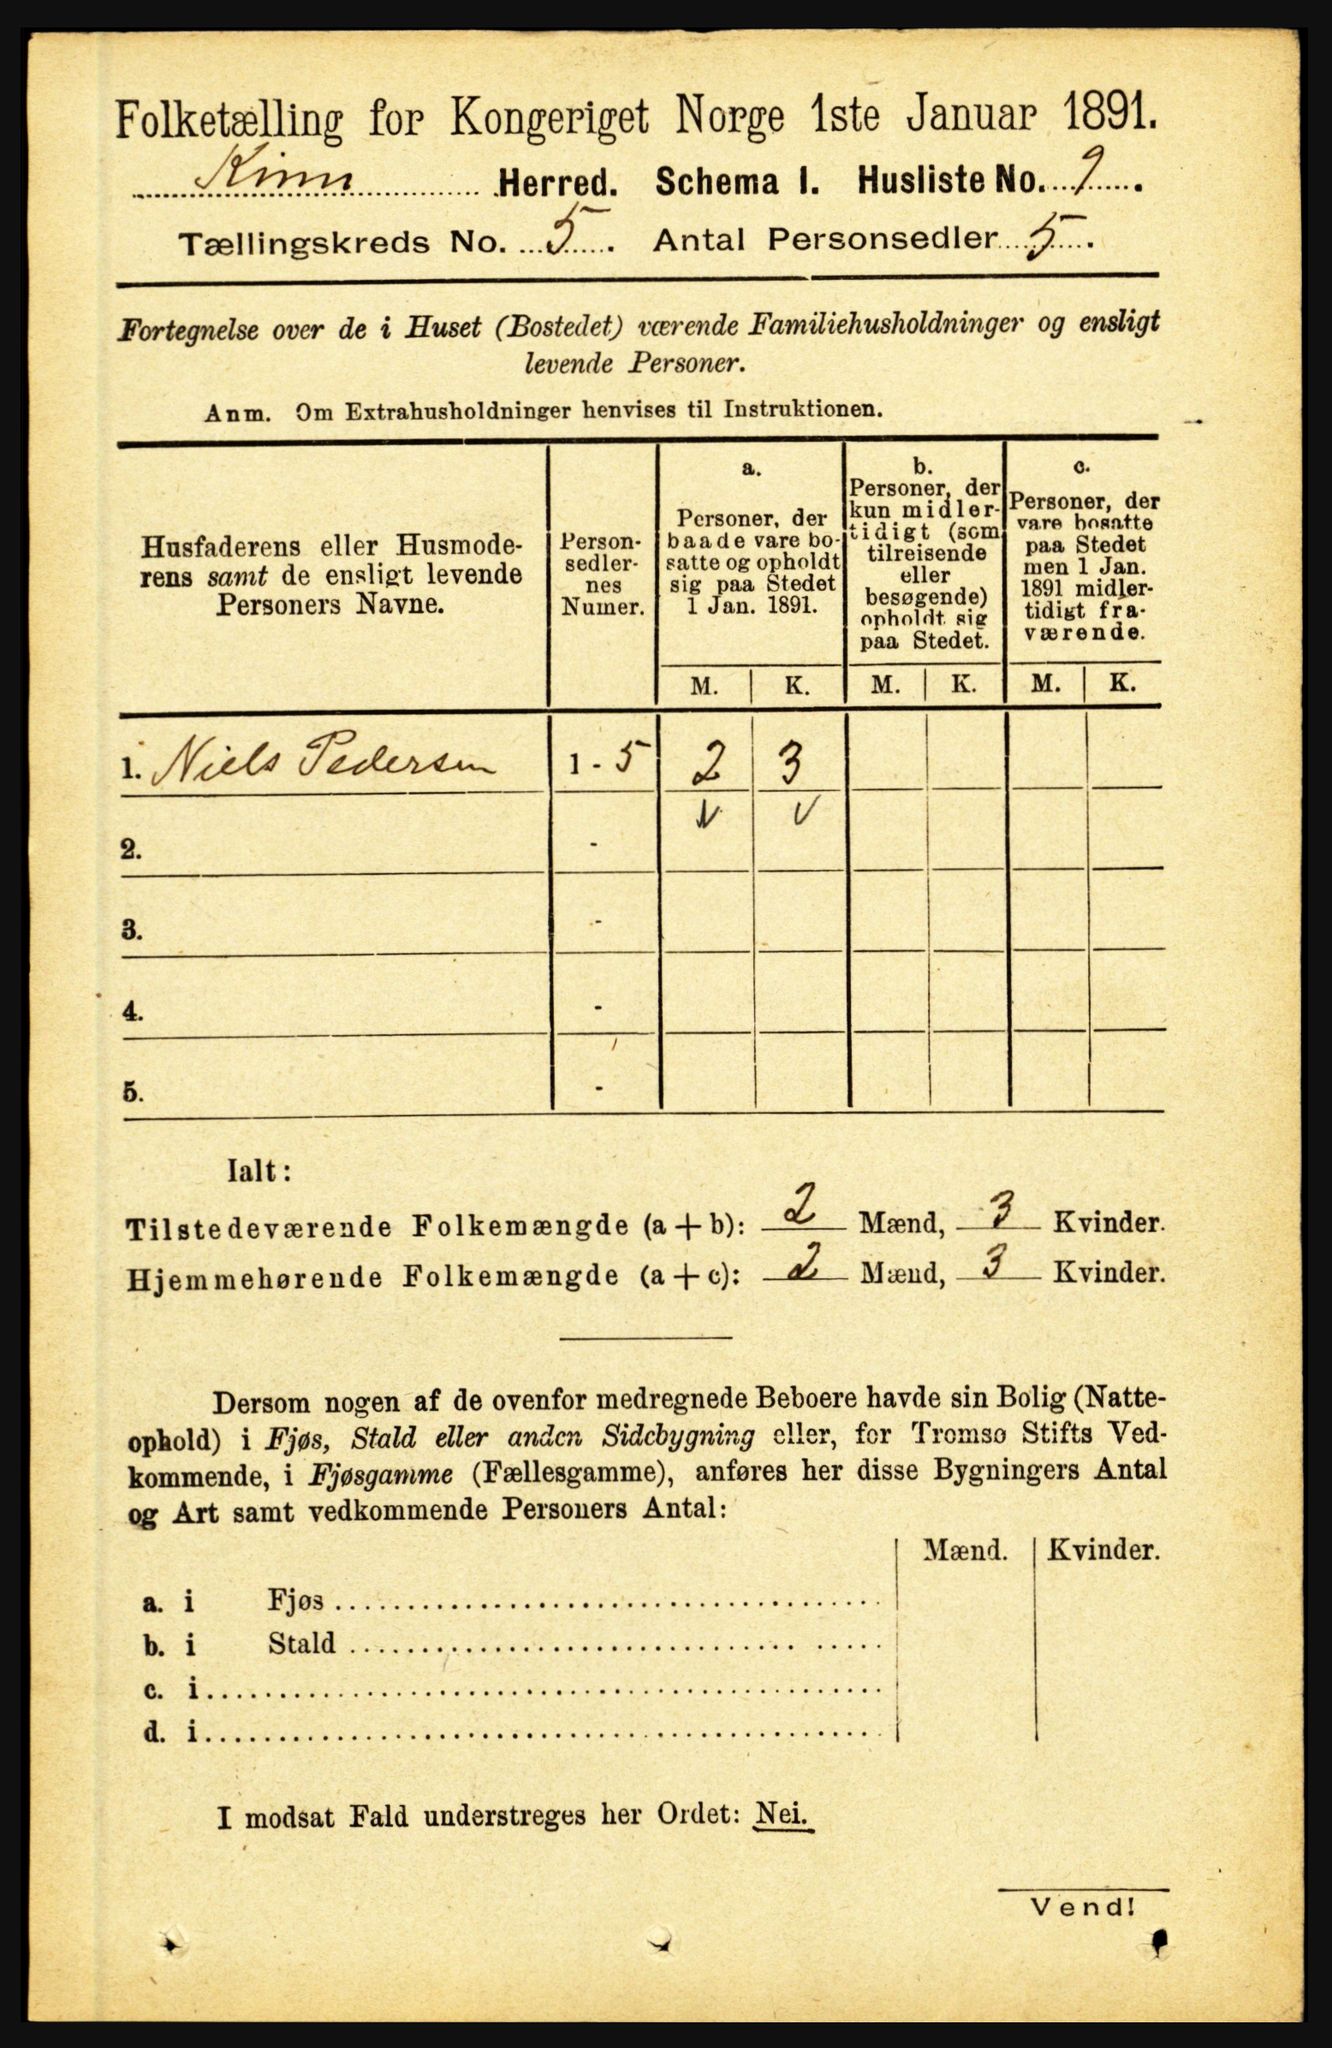 Folketælling for Kongeriget Norge 1ste Januar 1891.
Kinn Herred. Schema I. Husliste No. 9.
Tællingskreds No. 5. Antal Personsedler 5.
Fortegnelse over de i Huset (Bostedet) værende Familiehusholdninger og ensligt
levende Personer.
Anm. Om Extrahusholdninger henvises til Instruktionen.
Husfaderens eller Husmode-
rens samt de ensligt levende
Personers Navne.
Person-
sedler-
nes
Numer.
a.
Personer, der
baade vare bo-
satte og opholdt
sig paa Stedet
1 Jan. 1891.
b.
Personer, der
kun midler-
tidigt (som
tilreisende
eller
besøgende)
opholdt sig
paa Stedet.
c.
Personer, der
vare bosatte
paa Stedet
men 1 Jan.
1891 midler-
tidigt fra-
værende.
M. K. M. K. M. K.
1. Niels Pedersen 1 - 5 2 3
2. -
3. -
4. -
5. -
Ialt:
Tilstedeværende Folkemængde (a + b): 2 Mænd, 3 Kvinder.
Hjemmehørende Folkemængde (a + c): 2 Mænd, 3 Kvinder.
Dersom nogen af de ovenfor medregnede Beboere havde sin Bolig (Natte-
ophold) i Fjøs, Stald eller anden Sidebygning eller, for Tromsø Stifts Ved-
kommende, i Fjøsgamme (Fællesgamme), anføres her disse Bygningers Antal
og Art samt vedkommende Personers Antal:
Mænd. Kvinder.
a. i Fjøs
b. i Stald
c. i
d. i
I modsat Fald understreges her Ordet: Nei.
Vend!